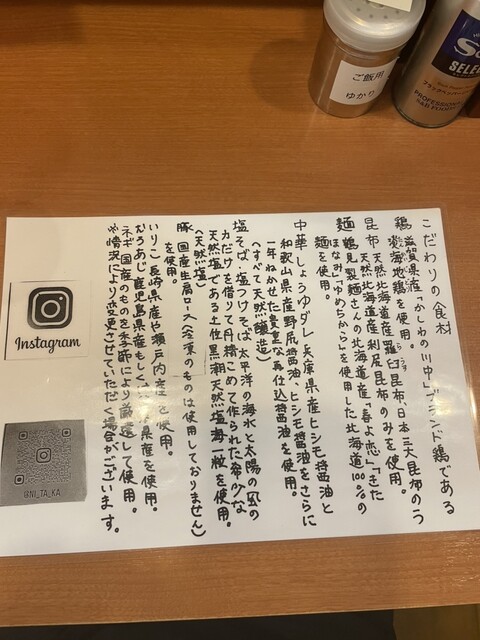 こだわりの食材
鶏 滋賀県産「かしわの川中」ブランド鶏である
淡海地鶏を使用。
昆布 天然北海道産羅臼昆布、日本三大昆布のう
天然北海道産利尻昆布のみを使用。
麺 鶴見製麺さんの北海道産「春よ恋」「きた
ほなみ」「ゆめちから」を使用した北海道100%の
麺を使用。
中華しょうゆダレ 兵庫県産ヒシモ醤油と
和歌山県産野尻醤油、ヒシモ醤油をさらに
一年ねかせた貴重な再仕込醤油を使用。
(すべて天然醸造)
塩そば、塩つけそば 太平洋の海水と太陽の風の
力だけを借りて丹精こめて作られた希少な
天然塩である土佐の黒潮天然塩海一粒を使用。
(天然塩)
豚 国産生肩ロース(冷凍のものは使用しておりません)
を使用。
いりこ 長崎県産や瀬戸内産を使用。
むろあじ 鹿児島県産もしくは
県産を使用。
ネギ 国産のものを季節により厳選して使用。
※情況により変更させていただく場合がございます。
Instagram
@NI_TA_KA
ご飯用
ゆかり
SELECT
PROFESSIONAL
S&B FOODS